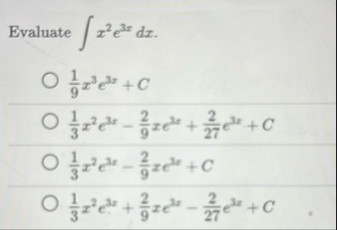 Evaluate ∫ x² e³ˣ dx.
○ 1/9 x³e³ˣ + C
○ 1/3 x²e³ˣ − 2/9 xe³ˣ + 2/27 e³ˣ + C
○ 1/3 x²e³ˣ − 2/9 xe³ˣ + C
○ 1/3 x²e³ˣ + 2/9 xe³ˣ − 2/27 e³ˣ + C